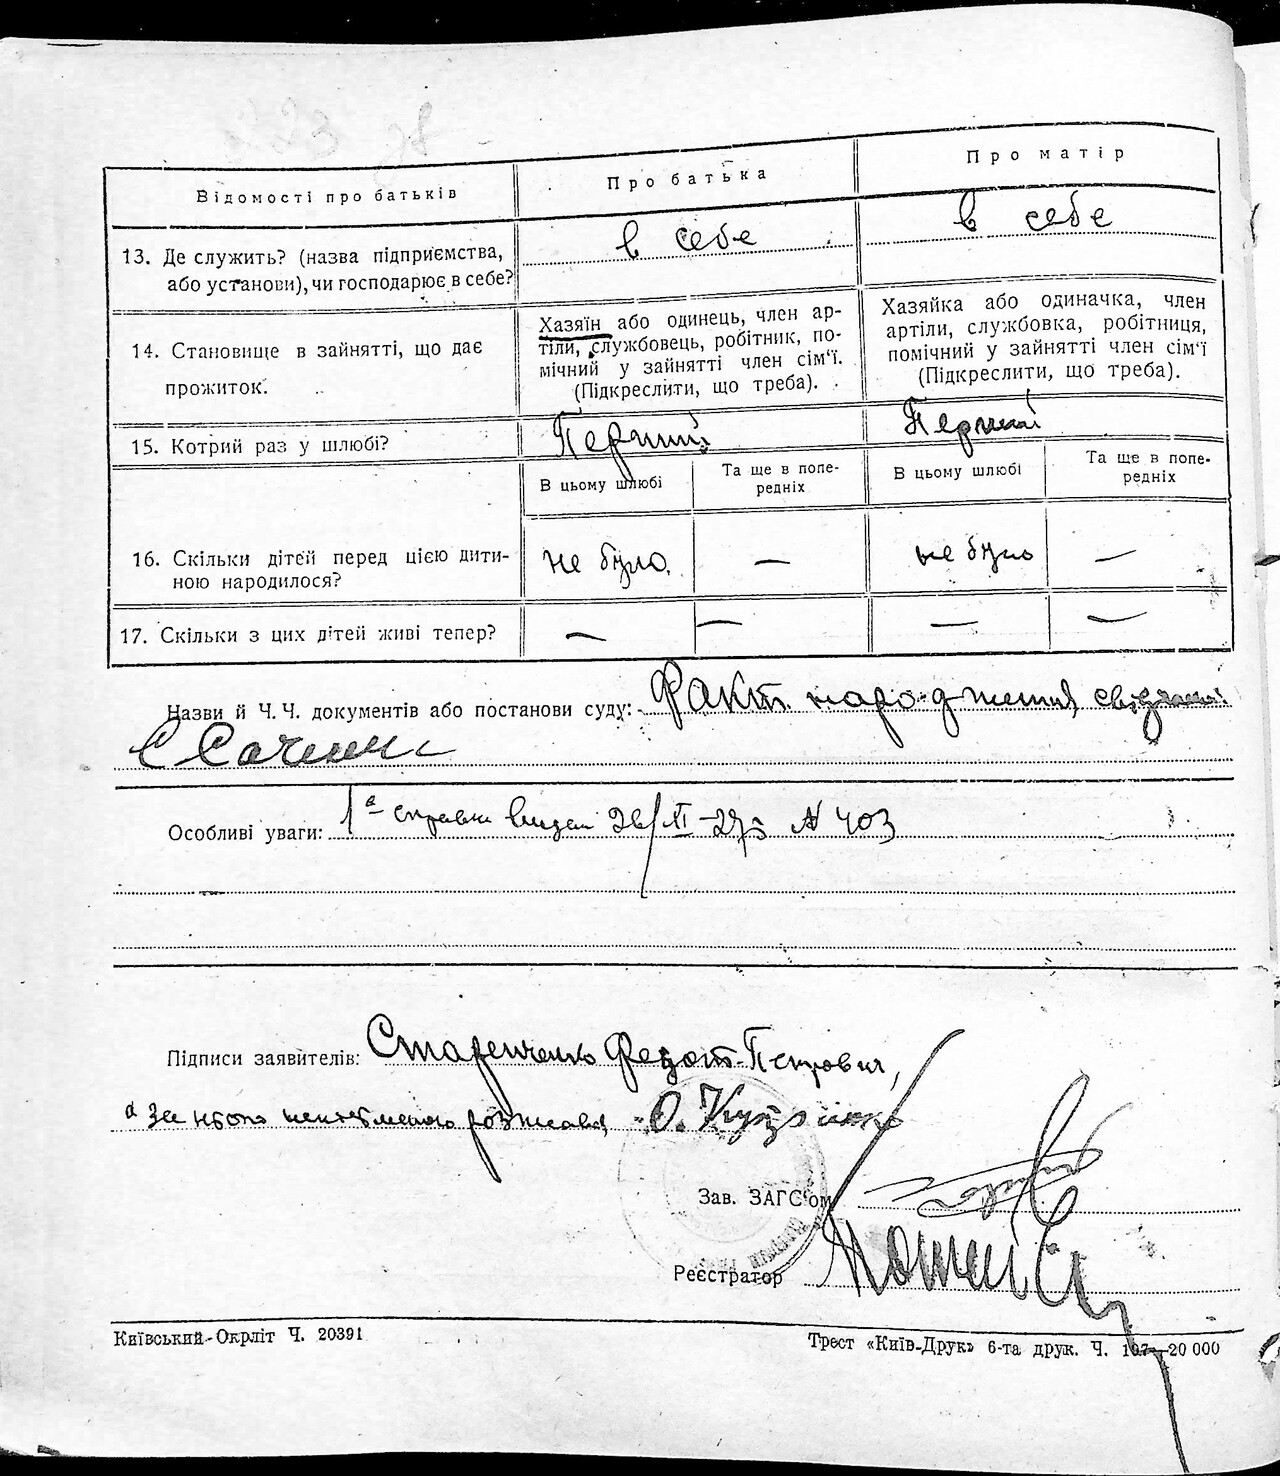 Відомості про батьків
Про батька
Про матір
13. Де служить? (назва підприємства, або установи), чи господарює в себе?
в себе
в себе
14. Становище в зайнятті, що дає прожиток.
Хазяїн або одинець, член ар-
тіли, службовець, робітник, по-
мічний у зайнятті член сім'ї.
(Підкреслити, що треба).
Хазяйка або одиначка, член
артіли, службовка, робітниця,
помічний у зайнятті член сім'ї
(Підкреслити, що треба).
15. Котрий раз у шлюбі?
Перший
Перший
В цьому шлюбі
Та ще в попе-
редніх
В цьому шлюбі
Та ще в попе-
редніх
16. Скільки дітей перед цією дити-
ною народилося?
не було
—
не було
—
17. Скільки з цих дітей живі тепер?
—
—
—
—
Назви й Ч.Ч. документів або постанови суду: Факт народження
Особливі уваги: 1а справка видан N 403
Підписи заявителів: Старенченко Федот Петрович,
а за нього розписався О.
Зав. ЗАГС'ом
Реєстратор
Київський Окрліт Ч. 20391
Трест «Київ-Друк» 6-та друк. Ч. 107—20 000